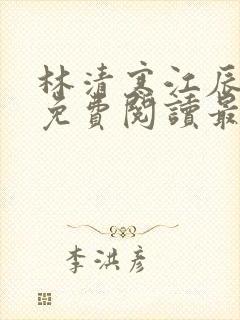 林清寒江辰
免費閱讀最
李洪彥